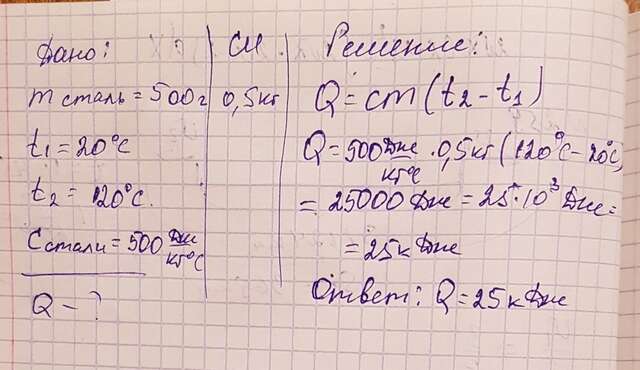 Дано:
m сталь = 500г
t₁ = 20°C
t₂ = 120°C.
Cстали = 500 Дж/кг°C
Q - ?
СИ
0,5кг
Решение:
Q = cm(t₂ - t₁)
Q = 500 Дж/кг°C · 0,5кг (120°C - 20°C)
= 25000 Дж = 25·10³ Дж =
= 25к Дж
Ответ: Q = 25к Дж